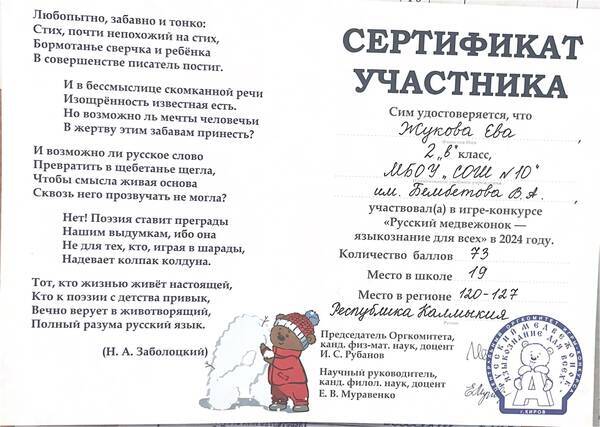 Любопытно, забавно и тонко:
Стих, почти непохожий на стих,
Бормотанье сверчка и ребёнка
В совершенстве писатель постиг.
И в бессмыслице скомканной речи
Изощрённость известная есть.
Но возможно ль мечты человечьи
В жертву этим забавам принесть?
И возможно ли русское слово
Превратить в щебетанье щегла,
Чтобы смысла живая основа
Сквозь него прозвучать не могла?
Нет! Поэзия ставит преграды
Нашим выдумкам, ибо она
Не для тех, кто, играя в шарады,
Надевает колпак колдуна.
Тот, кто жизнью живёт настоящей,
Кто к поэзии с детства привык,
Вечно верует в животворящий,
Полный разума русский язык.
(Н. А. Заболоцкий)
СЕРТИФИКАТ
УЧАСТНИКА
Сим удостоверяется, что
Жукова Ева
2 „в" класс,
МБОУ „СОШ №10"
им. Бембетова В.А.
участвовал(а) в игре-конкурсе
«Русский медвежонок —
языкознание для всех» в 2024 году.
Количество баллов 73
Место в школе 19
Место в регионе 120-127
Республика Калмыкия
Председатель Оргкомитета,
канд. физ-мат. наук, доцент
И. С. Рубанов
Научный руководитель,
канд. филол. наук, доцент
Е. В. Муравенко
ЦЕНТРАЛЬНЫЙ ОРГКОМИТЕТ ИГРЫ-КОНКУРСА
«РУССКИЙ МЕДВЕЖОНОК
ЯЗЫКОЗНАНИЕ ДЛЯ ВСЕХ»
А
г. КИРОВ